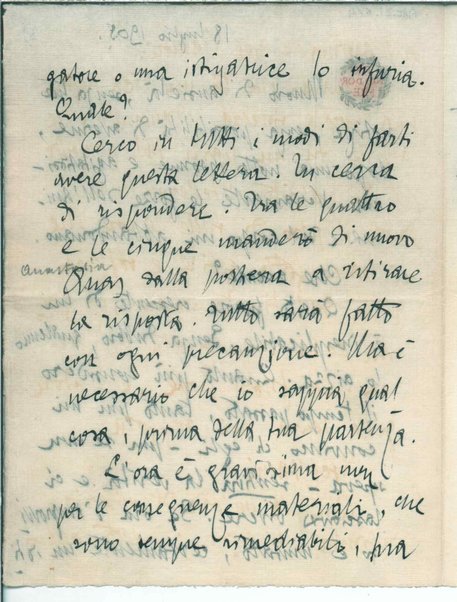 gatore o una istigatrice lo infuria.
Quale?
Cerco in tutti i modi di farti
avere questa lettera. Tu cerca
di rispondere. Tra le quattro
e le cinque manderò di nuovo
Anastasia
dalla portiera a ritirare
la risposta. Tutto sarà fatto
con ogni precauzione. Ma è
necessario che io sappia qual
cosa, prima della tua partenza.
L'ora è gravissima non
per le conseguenze materiali, che
sono sempre rimediabili, ma